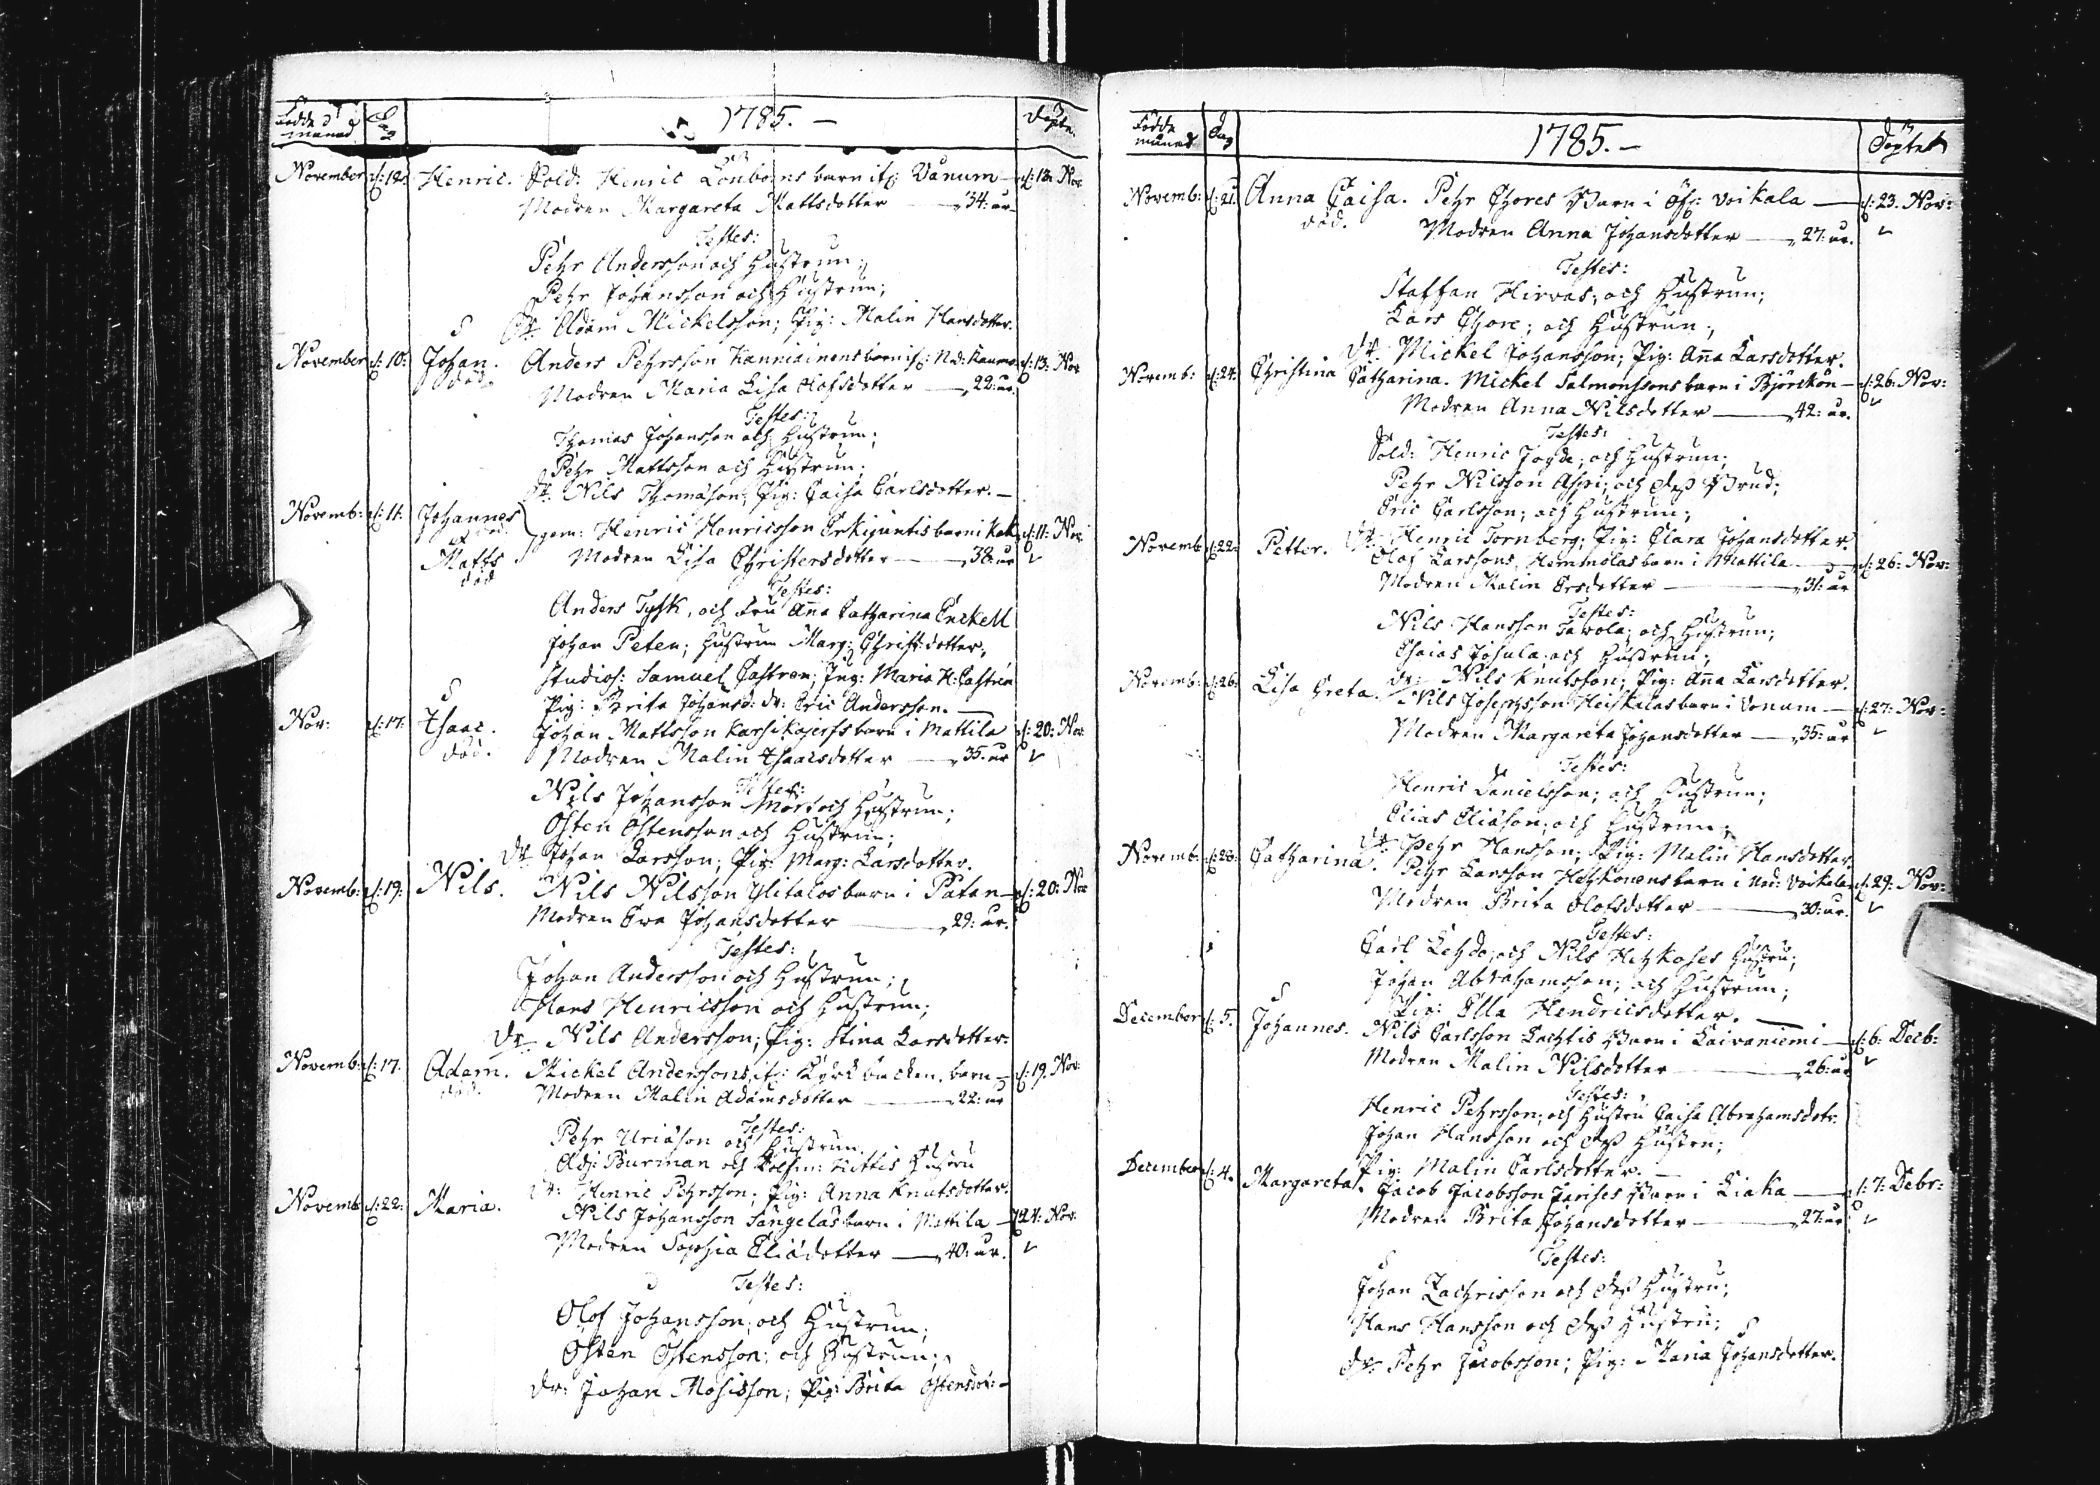 Födde månad Dag 1785.— Döpte.
November d: 12: Henric. Sold: Henric Lönbohns barn if: Vånum d: 13: Nov
Modren Margareta Mattsdotter — 34: år
Testes:
Pehr Andersson och Hustrun;
Pehr Johansson och Hustrun;
Dr: Adam Mickelsson; Pig: Malin Hansdotter.
November d: 10: Johan. Anders Pehrsson Kanniainens barn if: Ned: d: 13: Nov
död. Modren Maria Lisa Olofsdotter — 22: år.
Testes:
Thomas Johansson och Hustrun;
Pehr Mattsson och Hustrun;
Dr: Nils Thomasson; Pig: Caisa Carlsdotter.—
Novemb: d: 11: Johannes
gem: Henric Henricsson barn i d: 11: Nov
Matts Modren Lisa Christersdotter — 38: år
död
Testes:
Anders Tysk, och Fru Anna Catharina Enckell
Johan Peten; Hustrun Marg: Christ:dotter,
Studios: Samuel Castren; Jug: Maria H: Castrén
Pig: Brita Johansd: dr: Eric Andersson.—
Nov: d: 17: Isaac. Johan Mattsson Karsikojerfs barn i Mattila d: 20: Nov
död. Modren Malin Isaacsdotter — 35: år
Testes:
Nils Johansson Mört och Hustrun;
Östen Östensson och Hustrun;
Dr: Johan Larsson; Pig: Marg: Larsdotter.
Novemb: d: 19: Nils. Nils Nilsson Ylitalos barn i Pätan d: 20: Nov
Modren Ewa Johansdotter — 29: år.
Testes:
Johan Andersson och Hustrun;
Hans Henricsson och Hustrun;
Dr: Nils Andersson; Pig: Stina Larsdotter.
Novemb: d: 17. Adam. Mickel Anderssons, if: Kyrckbacken. barn — d: 19. Nov:
död. Modren Malin Adamsdotter — 22: år
Testes:
Pehr Uriäson och Hustrun.
Adj: Burman och Hustru
Dr: Henric Pehrsson; Pig: Anna Knutsdotter.
Novemb d: 22: Maria. Nils Johansson Sangelas barn i Mattila — 24: Nov:
Modren Sophia Eliädotter — 40: år.
Testes:
Olof Johansson; och Hustrun;
Östen Östensson; och Hustrun;
Dr: Johan Mosisson; Pig: Brita Östensdot:
Födde månad Dag 1785.— Döpte
Novemb: d: 21. Anna Caisa. Pehr Thores Barn i Öf: Voikala — d: 23. Nov:
död. Modren Anna Johansdotter — 27: år.
Testes:
Staffan Hirvas; och Hustrun;
Lars Thore; och Hustrun;
Dr: Mickel Johansson; Pig: Anna Larsdotter.
Novemb: d: 24: Christina Catharina. Mickel Salmonssons barn i Björckön — d: 26: Nov:
Modren Anna Nilsdotter — 42: år.
Testes:
Sold: Henric Jogde; och Hustrun;
Pehr Nilsson Aspi; och dess Brud;
Eric Carlsson; och Hustrun;
Dr: Henric Tornberg; Pig: Clara Johansdotter.
Novemb d: 22: Petter. Olof Larssons Hemmolas barn i Mattila d: 26: Nov:
Modren Malin Ersdotter — 31: år
Testes:
Nils Hansson Tawola; och Hustrun;
Esaias Josula; och Hustrun;
Dr: Nils Knutsson; Pig: Anna Larsdotter.
Novemb: d: 26: Lisa Greta. Nils Josephsson Heiskalas barn i Vonum d: 27: Nov:
Modren Margareta Johansdotter — 35: år
Testes:
Henric Danielsson; och Hustrun;
Elias Eliäson; och Hustrun;
Dr: Pehr Hansson; Pig: Malin Hansdotter.
Novemb: d: 28: Catharina. Pehr Larsson Heikonens barn i Ned: Voikala d: 29: Nov:
Modren Brita Olofsdotter — 30: år.
Testes:
Carl Lehdo; och Nils Hehkoses Hustru;
Johan Abrahamsson; och Hustrun;
Pig: Ella Hendricsdotter. —
December d: 5. Johannes. Nils Carlsson Lachtis Barn i Kaivaniemi — d: 6: Decb:
Modren Malin Nilsdotter — 26: år
Testes:
Henric Pehrsson; och Hustru Caisa Abrahamsdotr.
Johan Hansson och dess Hustru;
Pig: Malin Carlsdotter. —
December d: 4. Margareta. Jacob Jacobsson Jarises Barn i Liaka — d: 7: Debr:
Modren Brita Johansdotter — 27: år
Testes:
Johan Zachrisson och dess Hustru;
Hans Hansson och dess Hustru;
Dr: Pehr Jacobsson; Pig: Maria Johansdotter.